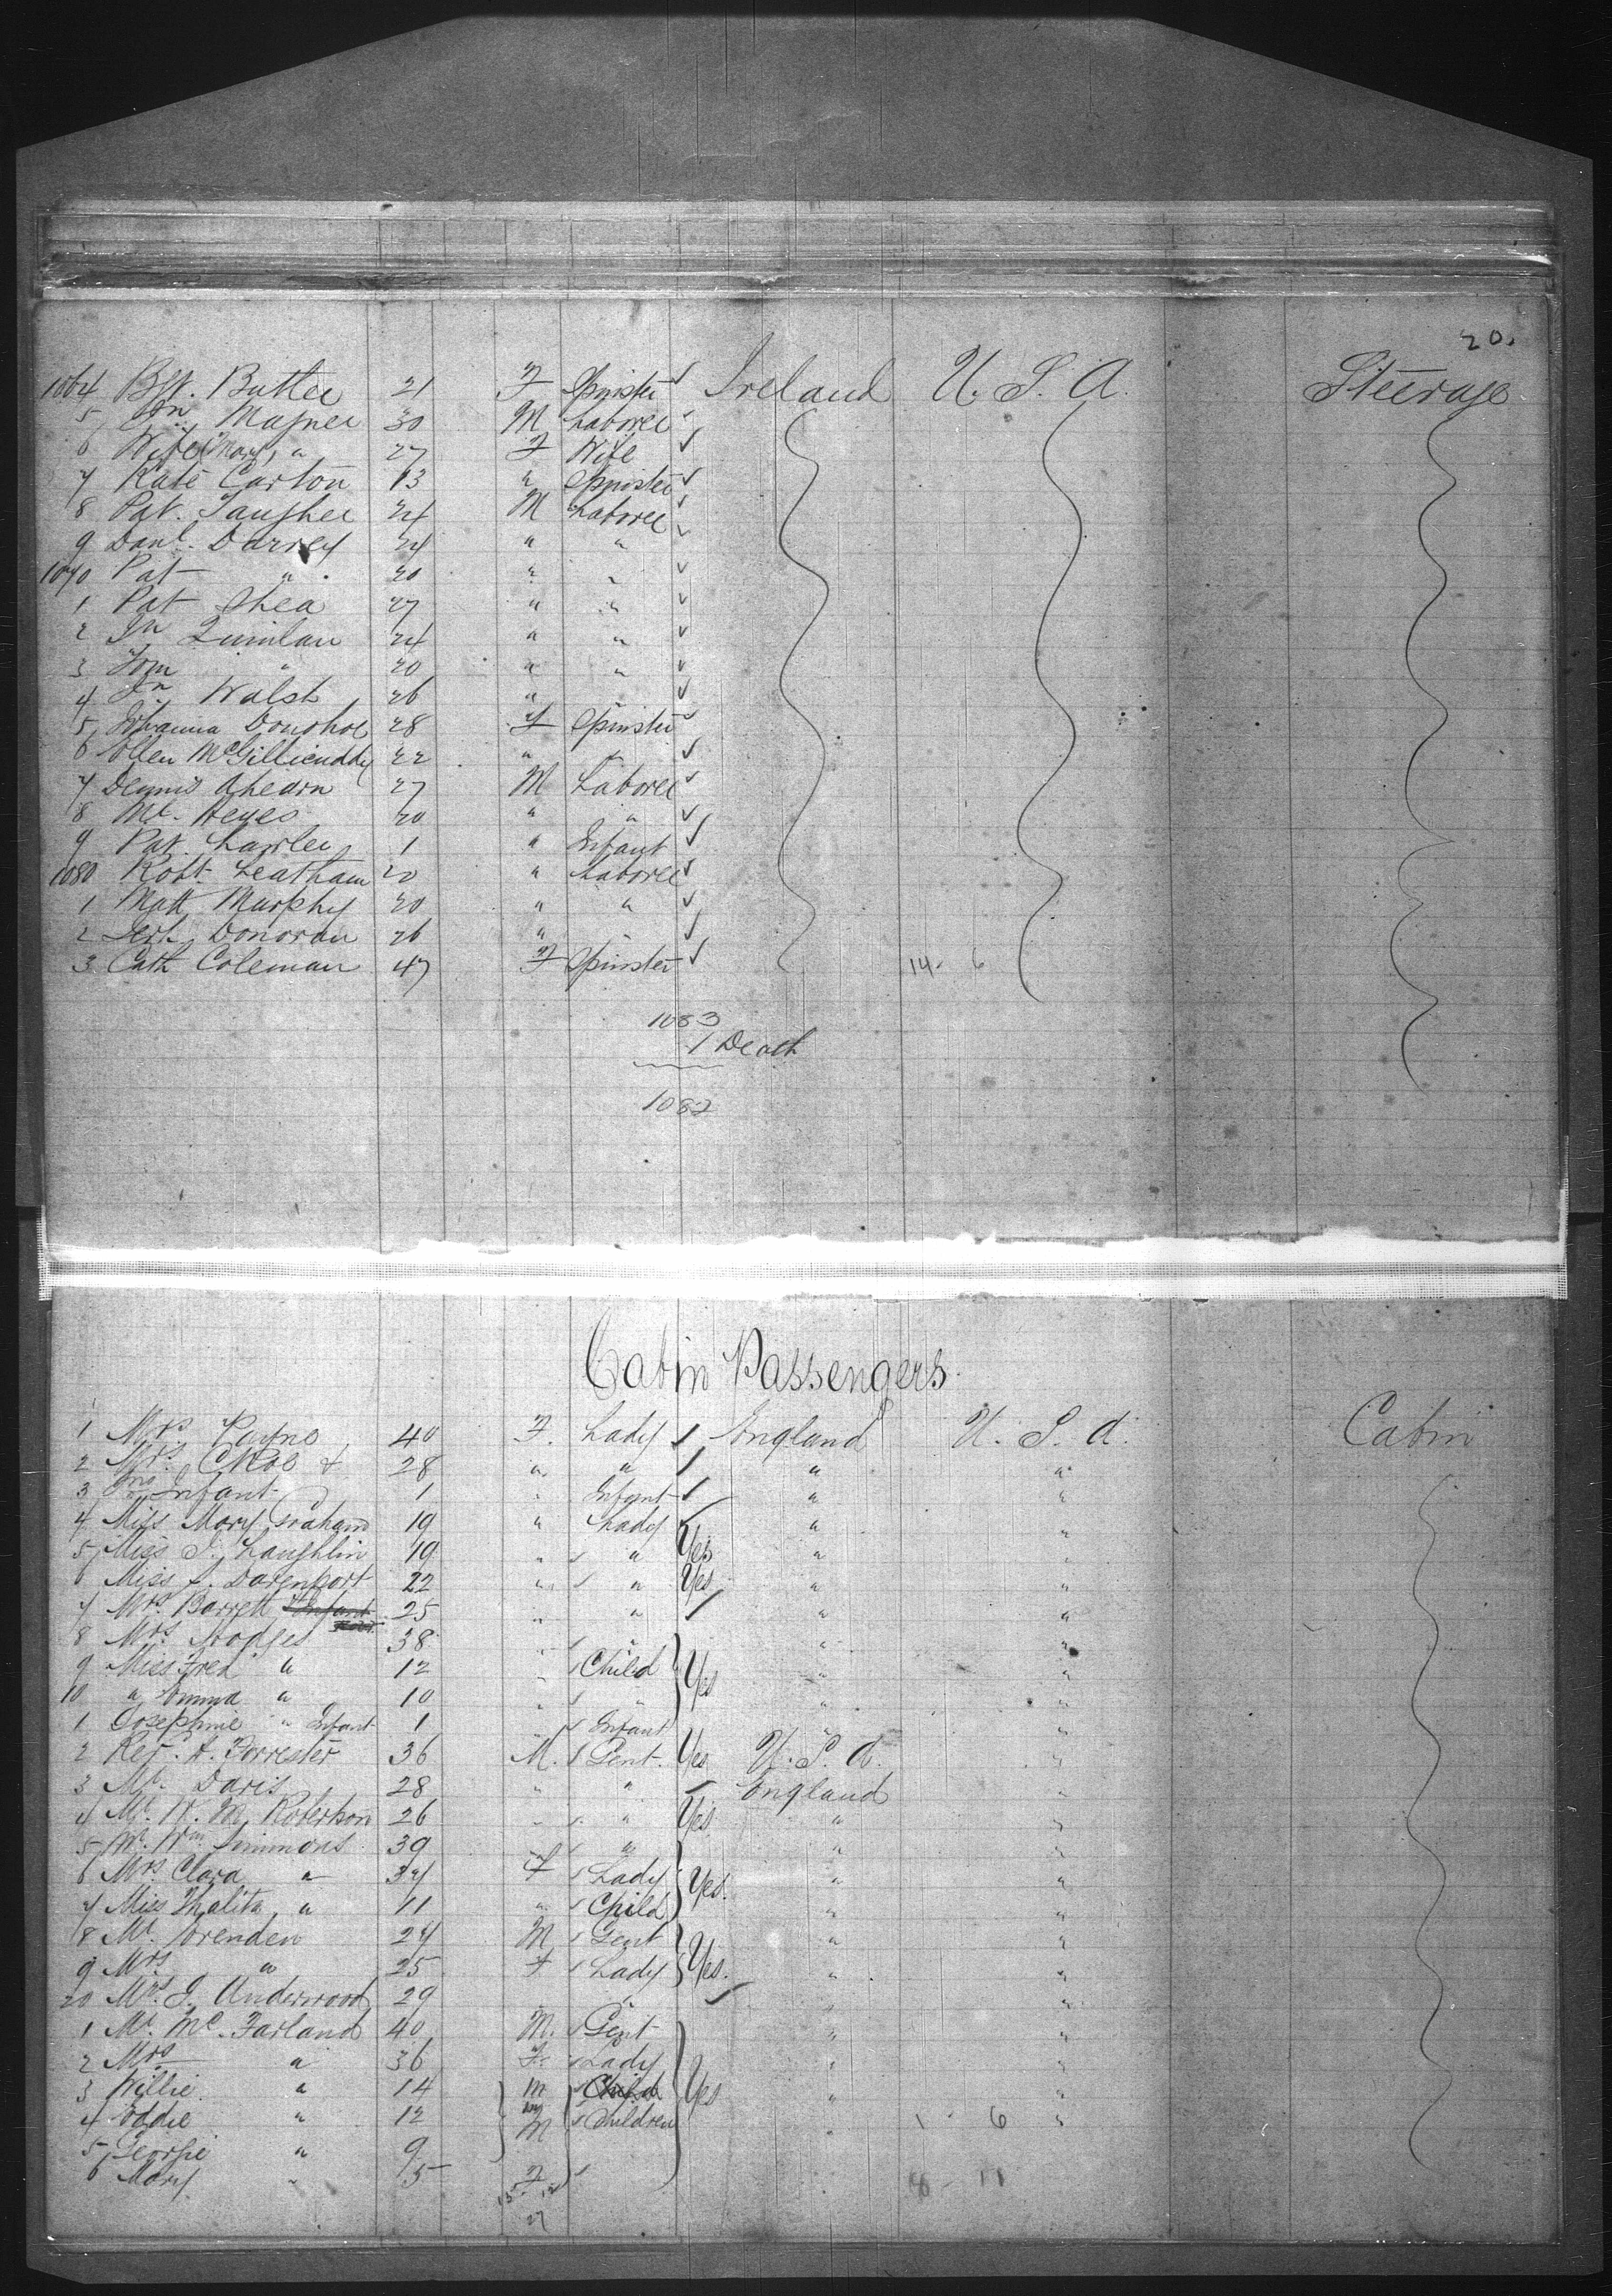 20.
1064 Bgt. Butler 21 F Spinster ✓ Ireland U. S. A. Steerage
5 Jn Magner 30 M Laborer ✓
6 Wife (Mary) " 27 F Wife ✓
7 Kate Carton 13 " Spinster ✓
8 Pat. Taugher 24 M Laborer ✓
9 Danl. Darrey 24 " " ✓
1070 Pat " 20 " " ✓
1 Pat Shea 27 " " ✓
2 Jn Quinlan 24 " " ✓
3 Tom " 20 " " ✓
4 Jn Walsh 26 " " ✓
5 Johanna Donohoe 28 F Spinster ✓
6 Ellen McGillicuddy 22 " " ✓
7 Dennis Ahearn 27 M Laborer ✓
8 Ml. Heyes 20 " " ✓
9 Pat. Lawler 1 " Infant ✓
1080 Robt. Leatham 20 " Laborer ✓
1 Matt Murphy 20 " " ✓
2 Jerh. Donovan 26 " " ✓
3 Cath Coleman 47 F Spinster ✓ 14 - 6
1083
1 Death
1082
Cabin Passengers.
1 Mrs Payne 40 F. Lady ✓ England U. S. A. Cabin
2 Mrs. C Roe + 28 " " ✓ " "
3 Infant 1 " Infant ✓ " "
4 Miss Mary Graham 19 " Lady ✓ " "
5 Miss J. Laughlin 19 " ✓ " Yes " "
6 Miss L. Davenport 22 " ✓ " Yes " "
7 Mrs. Barrett 25 " " ✓ " "
8 Mrs. Hodges 38 " ✓ " "
9 Miss Fred " 12 " ✓ Child Yes " "
10 " Emma " 10 " ✓ " " "
1 Josephine " Infant 1 " ✓ Infant "
2 Rev. A. Forrester 36 M. ✓ Gent. Yes U. S. A. "
3 Mr. Davis 28 " " ✓ England "
4 Mr. W. M. Robertson 26 " ✓ " Yes " "
5 Mr. Wm. Simmons 39 " ✓ " " "
6 Mrs Clara " 34 F ✓ Lady Yes. " "
7 Miss Thalita " 11 " ✓ Child " "
8 Mr. Brenden 24 M ✓ Gent " "
9 Mrs. " 25 F ✓ Lady Yes. " "
20 Mrs. J. Underwood 29 " ✓ " "
1 Mr. Mc. Farland 40 M. ✓ Gent " "
2 Mrs " 36 F. ✓ Lady " "
3 Willie " 14 M Yes " "
4 Eddie " 12 M ✓ Children " 1 - 6 "
5 Georgie " 9 "
6 Mary " 5 F ✓ " 11
15 12
27